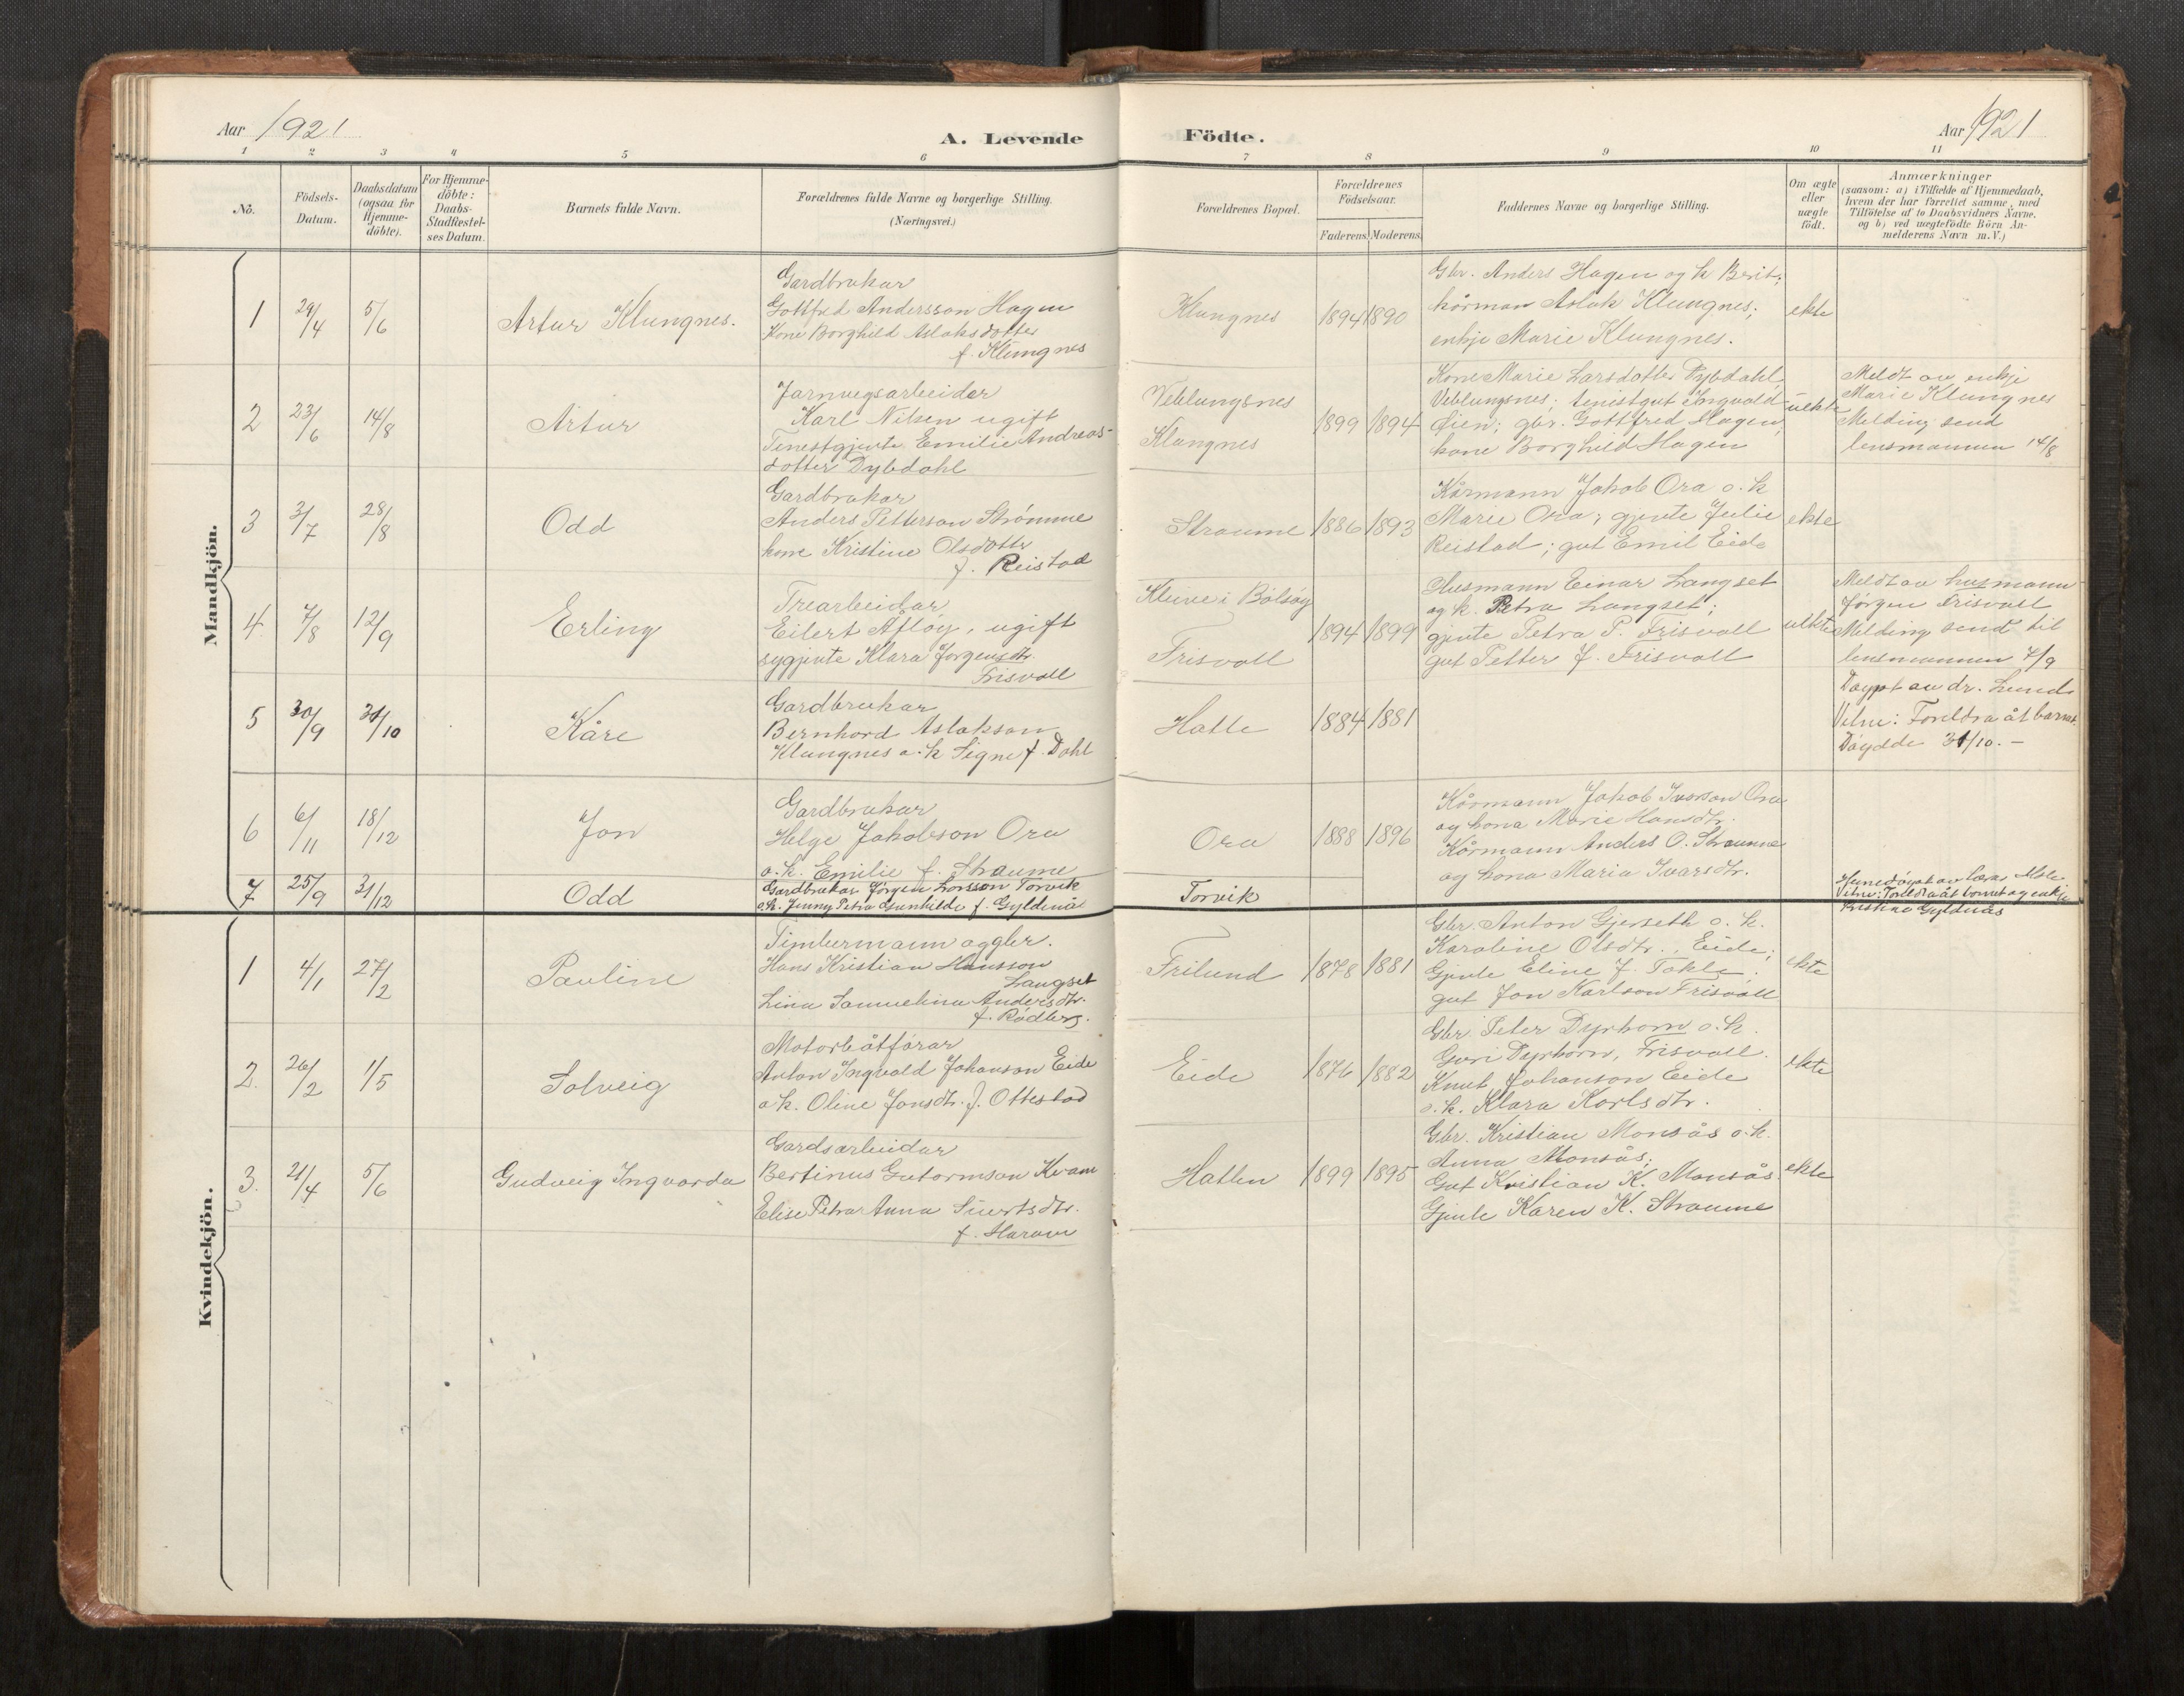 Aar 1921
A. Levende Födte.
Aar 1921
1 2 3 4 5 6 7 8 9 10 11
No.
Födsels-
Datum.
Daabsdatum
(ogsaa for
Hjemme-
döbte).
For Hjemme-
döbte:
Daabs-
Stadfæstel-
ses Datum.
Barnets fulde Navn.
Forældrenes fulde Navne og borgerlige Stilling.
(Næringsvei.)
Forældrenes Bopæl.
Forældrenes
Födselsaar.
Faderens. Moderens.
Faddernes Navne og borgerlige Stilling.
Om ægte
eller
uægte
födt.
Anmærkninger
(saasom: a) i Tilfælde af Hjemmedaab,
hvem der har forrettet samme, med
Tilföielse af to Daabsvidners Navne,
og b) ved uægtefödte Börn An-
melderens Navn m. V.)
Mandkjön.
1
29/4
5/6
Artur Klungnes.
Gardbrukar
Gottfred Andersson Hagen
Kone Borghild Aslaksdotter
f. Klungnes
Klungnes
1894 1890
Gbr. Anders Hagen og k Berit;
kårman Aslak Klungnes;
enkje Marie Klungnes.
ekte
2
23/6
14/8
Artur
Jarnvegsarbeider
Karl Nilsen ugift
Tenestgjente Emilie Andreas-
dotter Dybdahl
Veblungsnes
Klungnes
1899 1894
Kone Marie Larsdotter Dybdahl,
Veblungsnes; tenestgut Ingvald
Øien; gbr. Gottfred Hagen,
kone Borghild Hagen
uekte
Meldt av enkje
Marie Klungnes
Melding send
lensmannen 14/8
3
3/7
28/8
Odd
Gardbrukar
Anders Petterson Strømme
kone Kristine Olsdotter
f. Reistad
Straume
1886 1893
Kårmann Jakob Ora o. k
Marie Ora; gjente Julie
Reistad; gut Emil Eide
ekte
4.
7/8
12/9
Erling
Trearbeidar
Eilert Afløy, ugift
sygjente Klara Jørgensdtr.
Frisvoll
Kleive i Bolsøy
Frisvoll
1894 1899
Husmann Einar Langset
og k. Petra Langset;
gjente Petra P. Frisvoll
gut Petter J. Frisvoll
uekte
Meldt av husmann
Jørgen Frisvoll
Melding send til
lensmannen 7/9
5
30/9
31/10
Kåre
Gardbrukar
Bernhard Aslakson
Klungnes o. k Signe f. Dahl
Hatle
1884 1881
Døypt av dr. Lund.
Vitne: Foreldra åt barnet.
Døydde 31/10. —
6
6/11
18/12
Jon
Gardbrukar
Helge Jakobson Ora
o. k. Emilie f. Straume
Ora
1888 1896
Kårmann Jakob Ivarson Ora
og kona Marie Hansdtr.
Kårmann Anders O. Straume
og kona Maria Ivarsdtr.
7
25/9
31/12
Odd
Gardbrukar Jørgen Larsson Torvik
o.k. Jenny Petra Gunhilde f. Gyldenås
Torvik
Heimedøypt av Lærar Mole
Vitne: Foreldra åt barnet og enkje
Kristine Gyldnås
Kvindekjön.
1
4/1
27/2
Pauline
Timbermann oggbr.
Hans Kristian Hansson
Langset
Lina Samueline Andersdtr.
f. Rødberg.
Frilund
1878 1881
Gbr. Anton Gjerseth o. k.
Karoline Olsdtr., Eide;
Gjente Eline J. Takle;
gut Jon Karlson Frisvoll
ekte
2.
26/2
1/5
Solveig
Motorbåtførar
Anton Ingvald Johanson Eide
o. k. Oline Jonsdtr. f. Ottestad
Eide
1876 1882
Gbr. Peter Dyrhorn o. k.
Guri Dyrhorn, Frisvoll.
Knut Johanson Eide
o. k. Klara Karlsdtr.
ekte
3.
21/4
5/6
Gudveig Ingvarda
Gardsarbeidar
Bertinus Gutormson Kvam
Elise Petra Anna Siverts dtr.
f. Haram
Hatlen
1899 1895
Gbr. Kristian Monsås o. k.
Anna Monsås;
Gut Kristian K. Monsås
Gjente Karen K. Straume
ekte